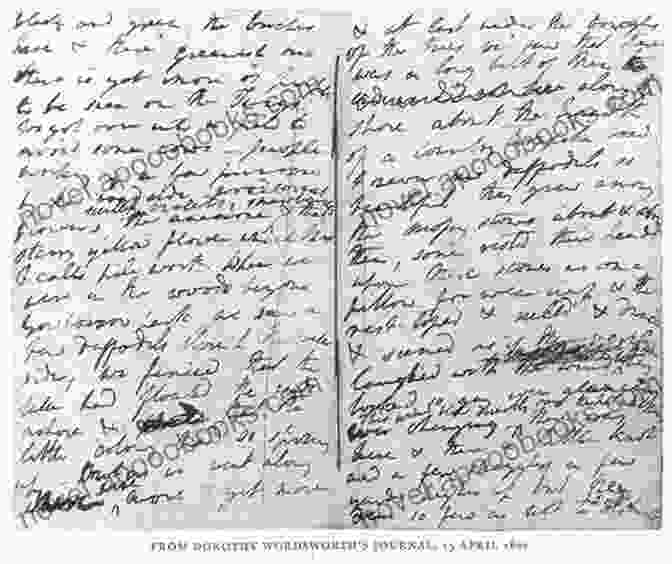 blacky and green, the birches
here & there greenish but
there is yet more of
to be seen on the Twigs.
We got over into a field to
avoid some cows – people
working, a few primroses
by the roadside,
flower, the anemone,
scentless violets, strawberries, & that
starry yellow flower which Mrs
C calls pile wort. When we
were in the woods beyond
Gowbarrow park we saw a
few daffodils close to the water
side, we fancied that the
lake had floated the seeds
ashore & that the
little colony had so sprung
up. But as we went along
there were more & yet more
& at last under the boughs
of the trees, we saw that there
was a long belt of them
along the
shore, about the breadth
of a country turnpike road
I never saw daffodils so
beautiful they grew among
the mossy stones about & about
them, some rested their heads
upon these stones as on a
pillow for weariness & the
rest tossed & reeled & danced
& seemed as if they verily
laughed with the wind
looked so gay ever glancing
ever changing
here & there a little knot
and a few stragglers a few
yards higher up but they
were so few as not to
FROM DOROTHY WORDSWORTH'S JOURNAL, 15 APRIL 1802
novel.apooobooks.com
novel.apooobooks.com
novel.apooobooks.com
novel.apooobooks.com